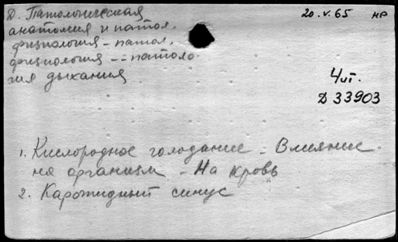 Д. Патологическая
20.V.65 НР
анатомия и патол.
физиология - патол.
физиология -- патоло-
гия дыхания
4 чт.
Д 33903
1. Кислородное голодание - Влияние
на организм - На кровь
2. Каротидный синус